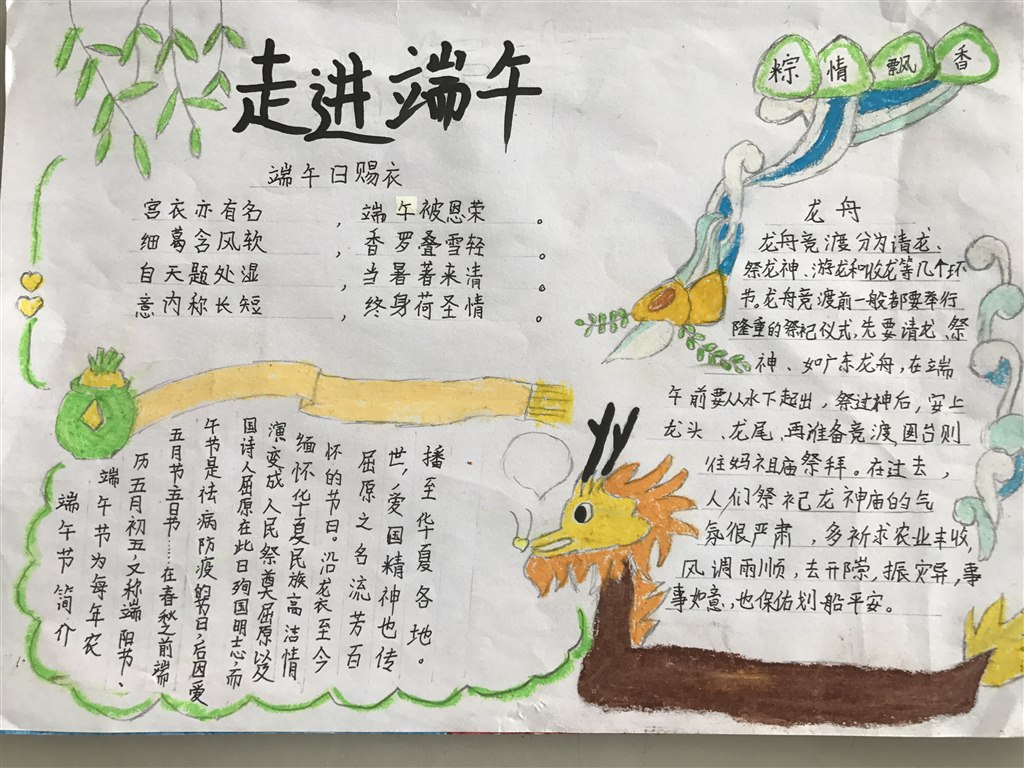 走进端午
粽情飘香
端午日赐衣
宫衣亦有名，端午被恩荣。
细葛含风软，香罗叠雪轻。
自天题处湿，当暑著来清。
意内称长短，终身荷圣情。
龙舟
龙舟竞渡分为请龙、
祭龙神、游龙和收龙等几个环
节。龙舟竞渡前一般都要举行
隆重的祭祀仪式，先要请龙、祭
神、如广东龙舟，在端
午前要从水下起出，祭过神后，安上
龙头、龙尾、再准备竞渡，
往妈祖庙祭拜。在过去，
人们祭祀龙神庙的气
氛很严肃，多祈求农业丰收，
风调雨顺，去，振灾异，事
事如意，也保佑划船平安。
端午节简介
端午节为每年农
历五月初五，又称端阳节、
五月节五日节……在春秋之前端
午节是祛病防疫的节日，后因爱
国诗人屈原在此日殉国明志，而
演变成人民祭奠屈原以及
缅怀华夏民族高洁情
怀的节日。沿龙衣至今
屈原之名流芳百
世，爱国精神也传
播至华夏各地。